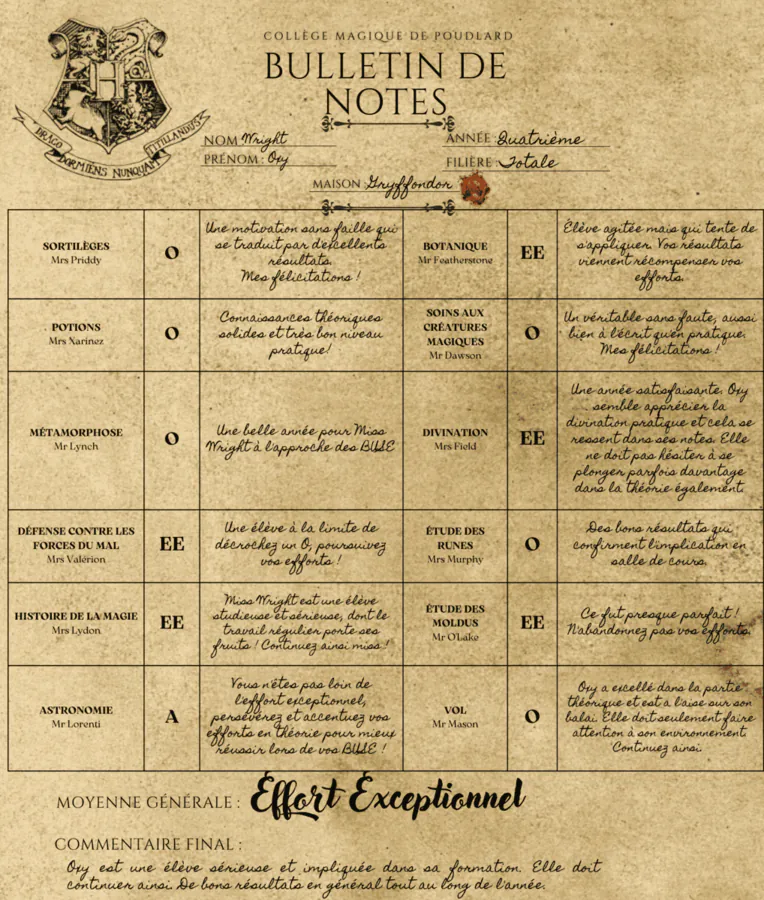 COLLÈGE MAGIQUE DE POUDLARD
BULLETIN DE
NOTES
DRACO DORMIENS NUNQUAM TITILLANDUS
NOM Wright
PRÉNOM : Oxy
ANNÉE : Quatrième
FILIÈRE : Totale
MAISON : Gryffondor
SORTILÈGES
Mrs Priddy
O
Une motivation sans faille qui
se traduit par d'excellents
résultats.
Mes félicitations !
BOTANIQUE
Mr Featherstone
EE
Élève agitée mais qui tente de
s'appliquer. Vos résultats
viennent récompenser vos
efforts.
POTIONS
Mrs Xarinez
O
Connaissances théoriques
solides et très bon niveau
pratique!
SOINS AUX
CRÉATURES
MAGIQUES
Mr Dawson
O
Un véritable sans faute, aussi
bien à l'écrit qu'en pratique.
Mes félicitations !
MÉTAMORPHOSE
Mr Lynch
O
Une belle année pour Miss
Wright à l'approche des BUSE
DIVINATION
Mrs Field
EE
Une année satisfaisante, Oxy
semble apprécier la
divination pratique et cela se
ressent dans ses notes. Elle
ne doit pas hésiter à se
plonger parfois davantage
dans la théorie également.
DÉFENSE CONTRE LES
FORCES DU MAL
Mrs Valérion
EE
Une élève à la limite de
décrochez un O, poursuivez
vos efforts !
ÉTUDE DES
RUNES
Mrs Murphy
O
Des bons résultats qui
confirment l'implication en
salle de cours.
HISTOIRE DE LA MAGIE
Mrs Lydon
EE
Miss Wright est une élève
studieuse et sérieuse, dont le
travail régulier porte ses
fruits ! Continuez ainsi miss !
ÉTUDE DES
MOLDUS
Mr O'Lake
EE
Ce fut presque parfait !
N'abandonnez pas vos efforts.
ASTRONOMIE
Mr Lorenti
A
Vous n'êtes pas loin de
l'effort exceptionnel,
persévérez et accentuez vos
efforts en théorie pour mieux
réussir lors de vos BUSE !
VOL
Mr Mason
O
Oxy a excellé dans la partie
théorique et est à l'aise sur son
balai. Elle doit seulement faire
attention à son environnement
Continuez ainsi.
MOYENNE GÉNÉRALE : Effort Exceptionnel
COMMENTAIRE FINAL :
Oxy est une élève sérieuse et impliquée dans sa formation. Elle doit
continuer ainsi. De bons résultats en général tout au long de l'année.